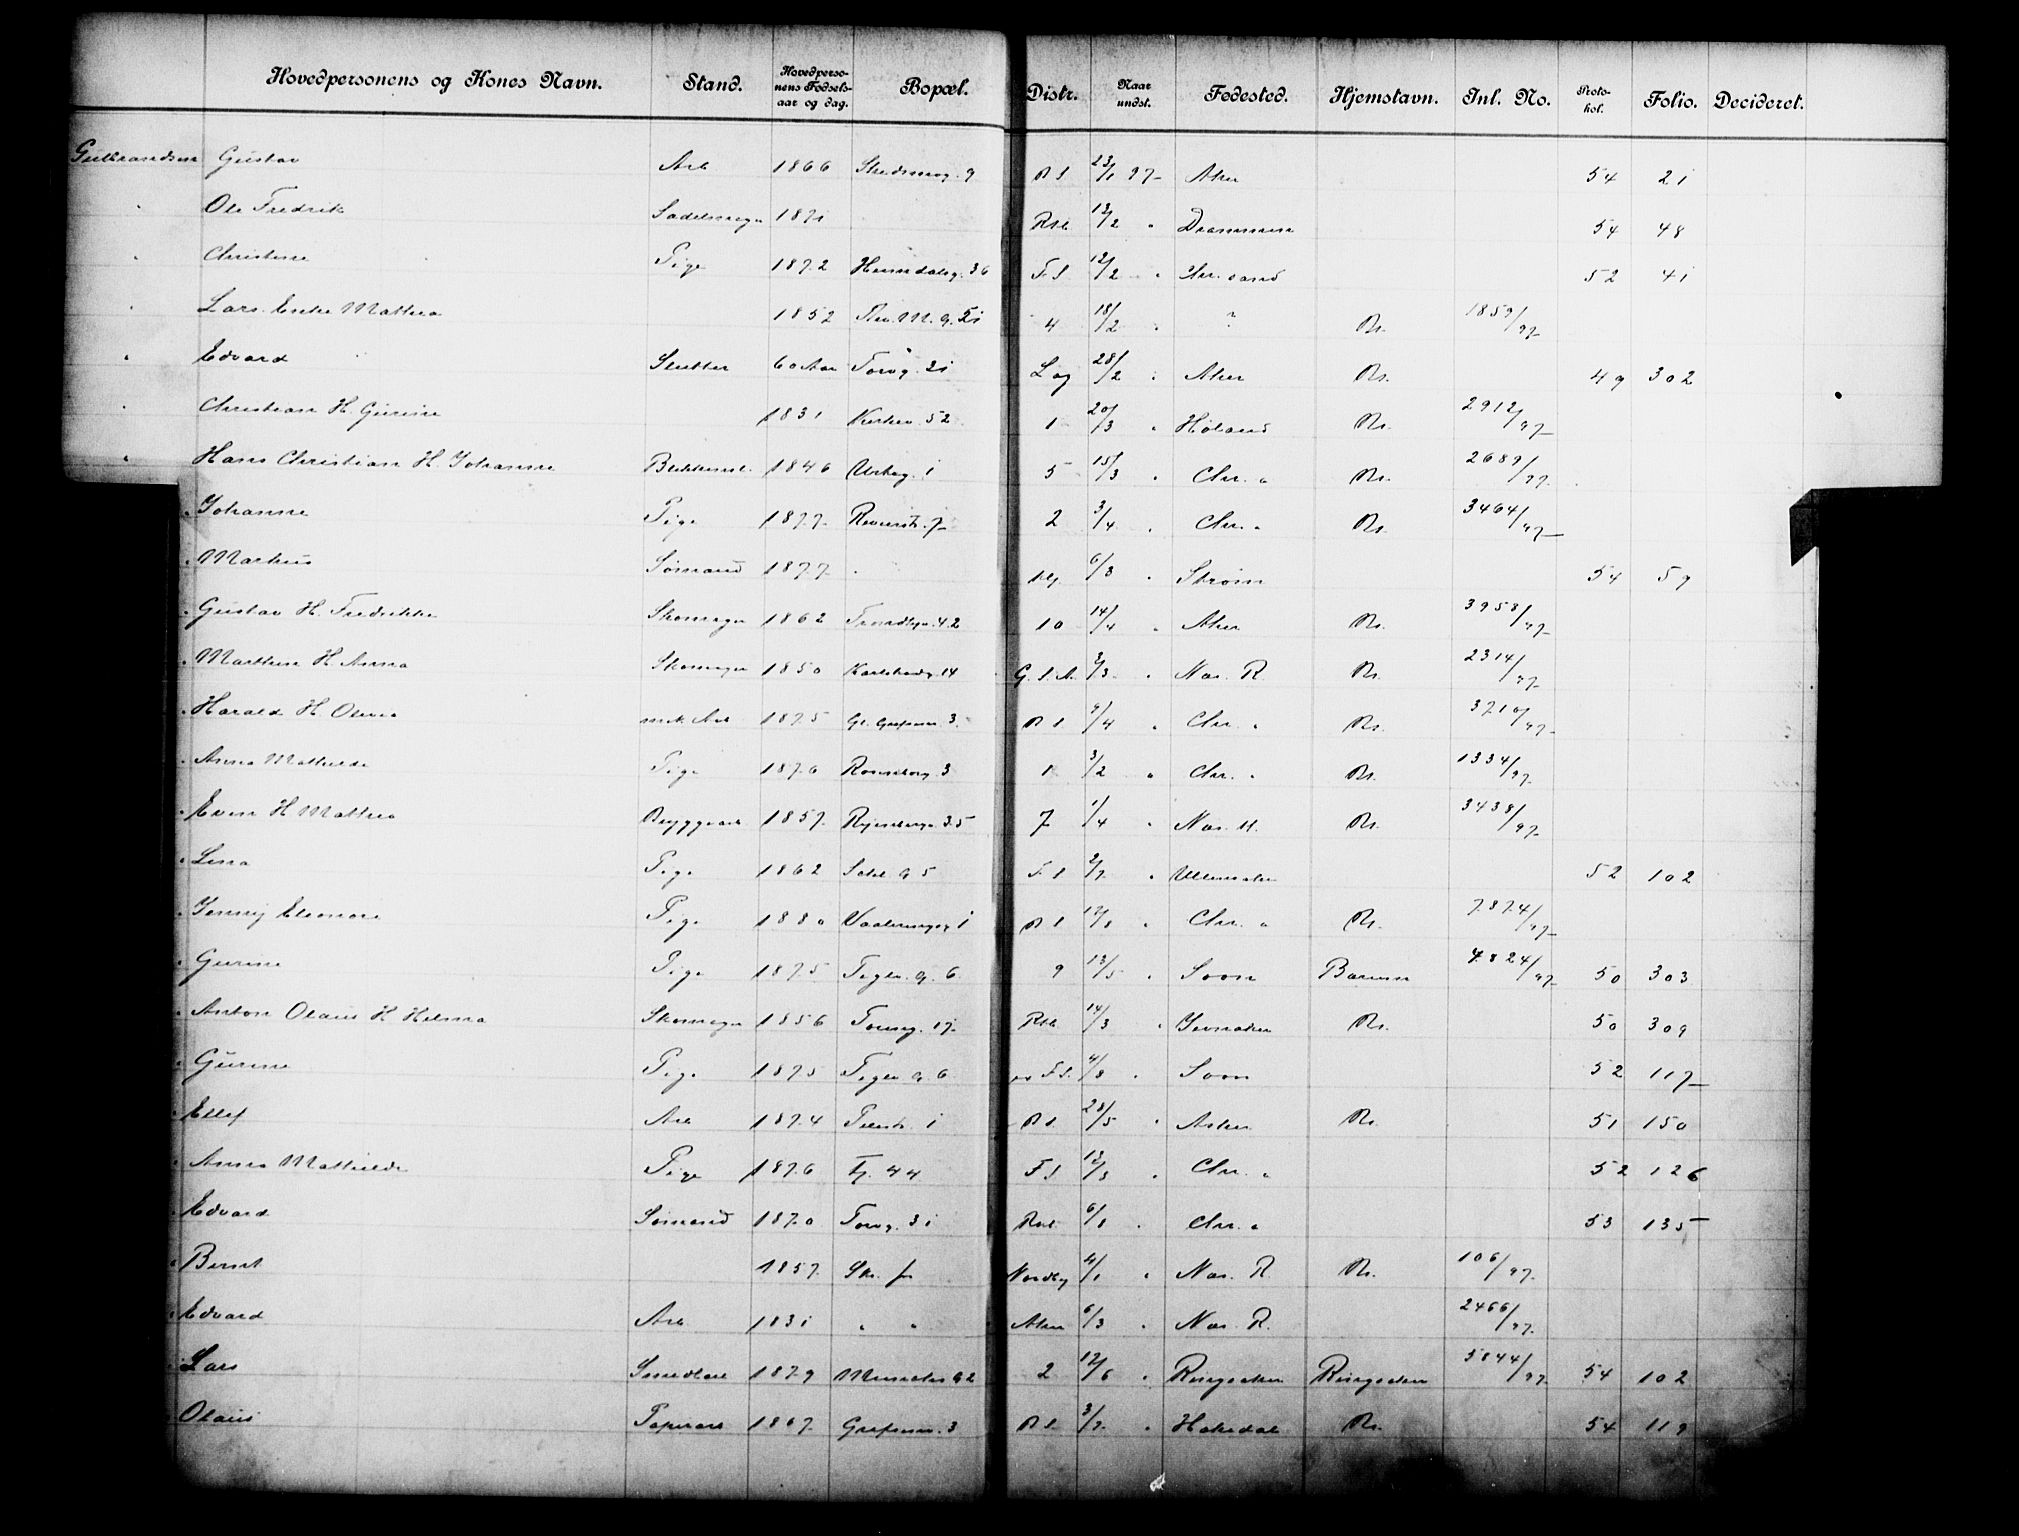 Hovedpersonens og Kones Navn. Stand. Hovedperso-nens Fødsels-aar og dag. Bopæl. Distr. Naar undst. Fødested. Hjemstavn. Inl. No. Proto-kol. Folio. Decideret.
Gulbrandsen Gustav Arb 1866 9 23/1 97 Aker 54 21
Ole Fredrik 1871 13/2 " Drammen 54 48
Christine Pige 1872 Heimdalsg. 36 F. S. 12/2 " Chr.sand 52 41
Lars Enke Mathea 1852 4 18/2 " ? 1859/97
Edvard 60 Aar Torvg. 31 Lag 28/2 " Aker 49 302
Christian H. Gurine 1831 Kirkev. 52 1 20/3 " Høland 2912/97
Hans Christian H. Johanne 1846 Urteg. 1 5 15/3 " Chr. a 2689/97
Johanne Pige 1877 Revierstr. 7 2 3/4 " Chr. a 3464/97
Markus Sømand 1877 6/3 " Strøm 54 59
Gustav H. Fredrikke Skomager 1862 Trondhjv. 42 10 14/4 " Aker 3958/97
Mathias H Anna Skomager 1850 Karlstadg. 14 3/3 " Næs. R. 2314/97
Harald H. Olivia 1875 Gl. Grefsenv. 3 9/4 " Chr. a 3710/97
Anna Mathilde Pige 1876 Rosenborg. 3 1 3/2 " Chr. a 1334/97
Even H Mathea Bryggearb 1857 35 7 1/4 " Næs. H. 3438/97
Lina Pige 1862 5 F. S 2/7 " Ullensaker 52 102
Jenny Eleonore Pige 1880 Vaalerengg 1 12/8 " Chr. a 7874/97
Gurine Pige 1875 Teglv. G. 6 9 13/5 " Soon Bærum 4824/97 50 303
Anton Olaus H Helma Skomager 1856 Toieng. 17 14/3 " Jevnaker 50 309
Gurine Pige 1875 Teglv G. 6 F. S. 4/8 " Soon 52 117
Ellef Arb 1874 Pilestr. 1 28/5 " Asker 51 150
Anna Mathilde Pige 1876 44 F S 12/8 " Chr. a 52 126
Edvard Sømand 1870 Torvg. 31 6/8 " Chr. a 53 135
Bernt 1857 Nordby 4/1 " Næs. R. 106/97
Edvard Arb 1831 " " Aker 6/3 " Næs. R. 2466/97
Lars Smedlærl 1879 2 12/6 " Ringsaker Ringsaker 5844/97 54 102
Olaus Papirarb 1867 Grefsenv. 3 3/7 " Hakedal 54 119